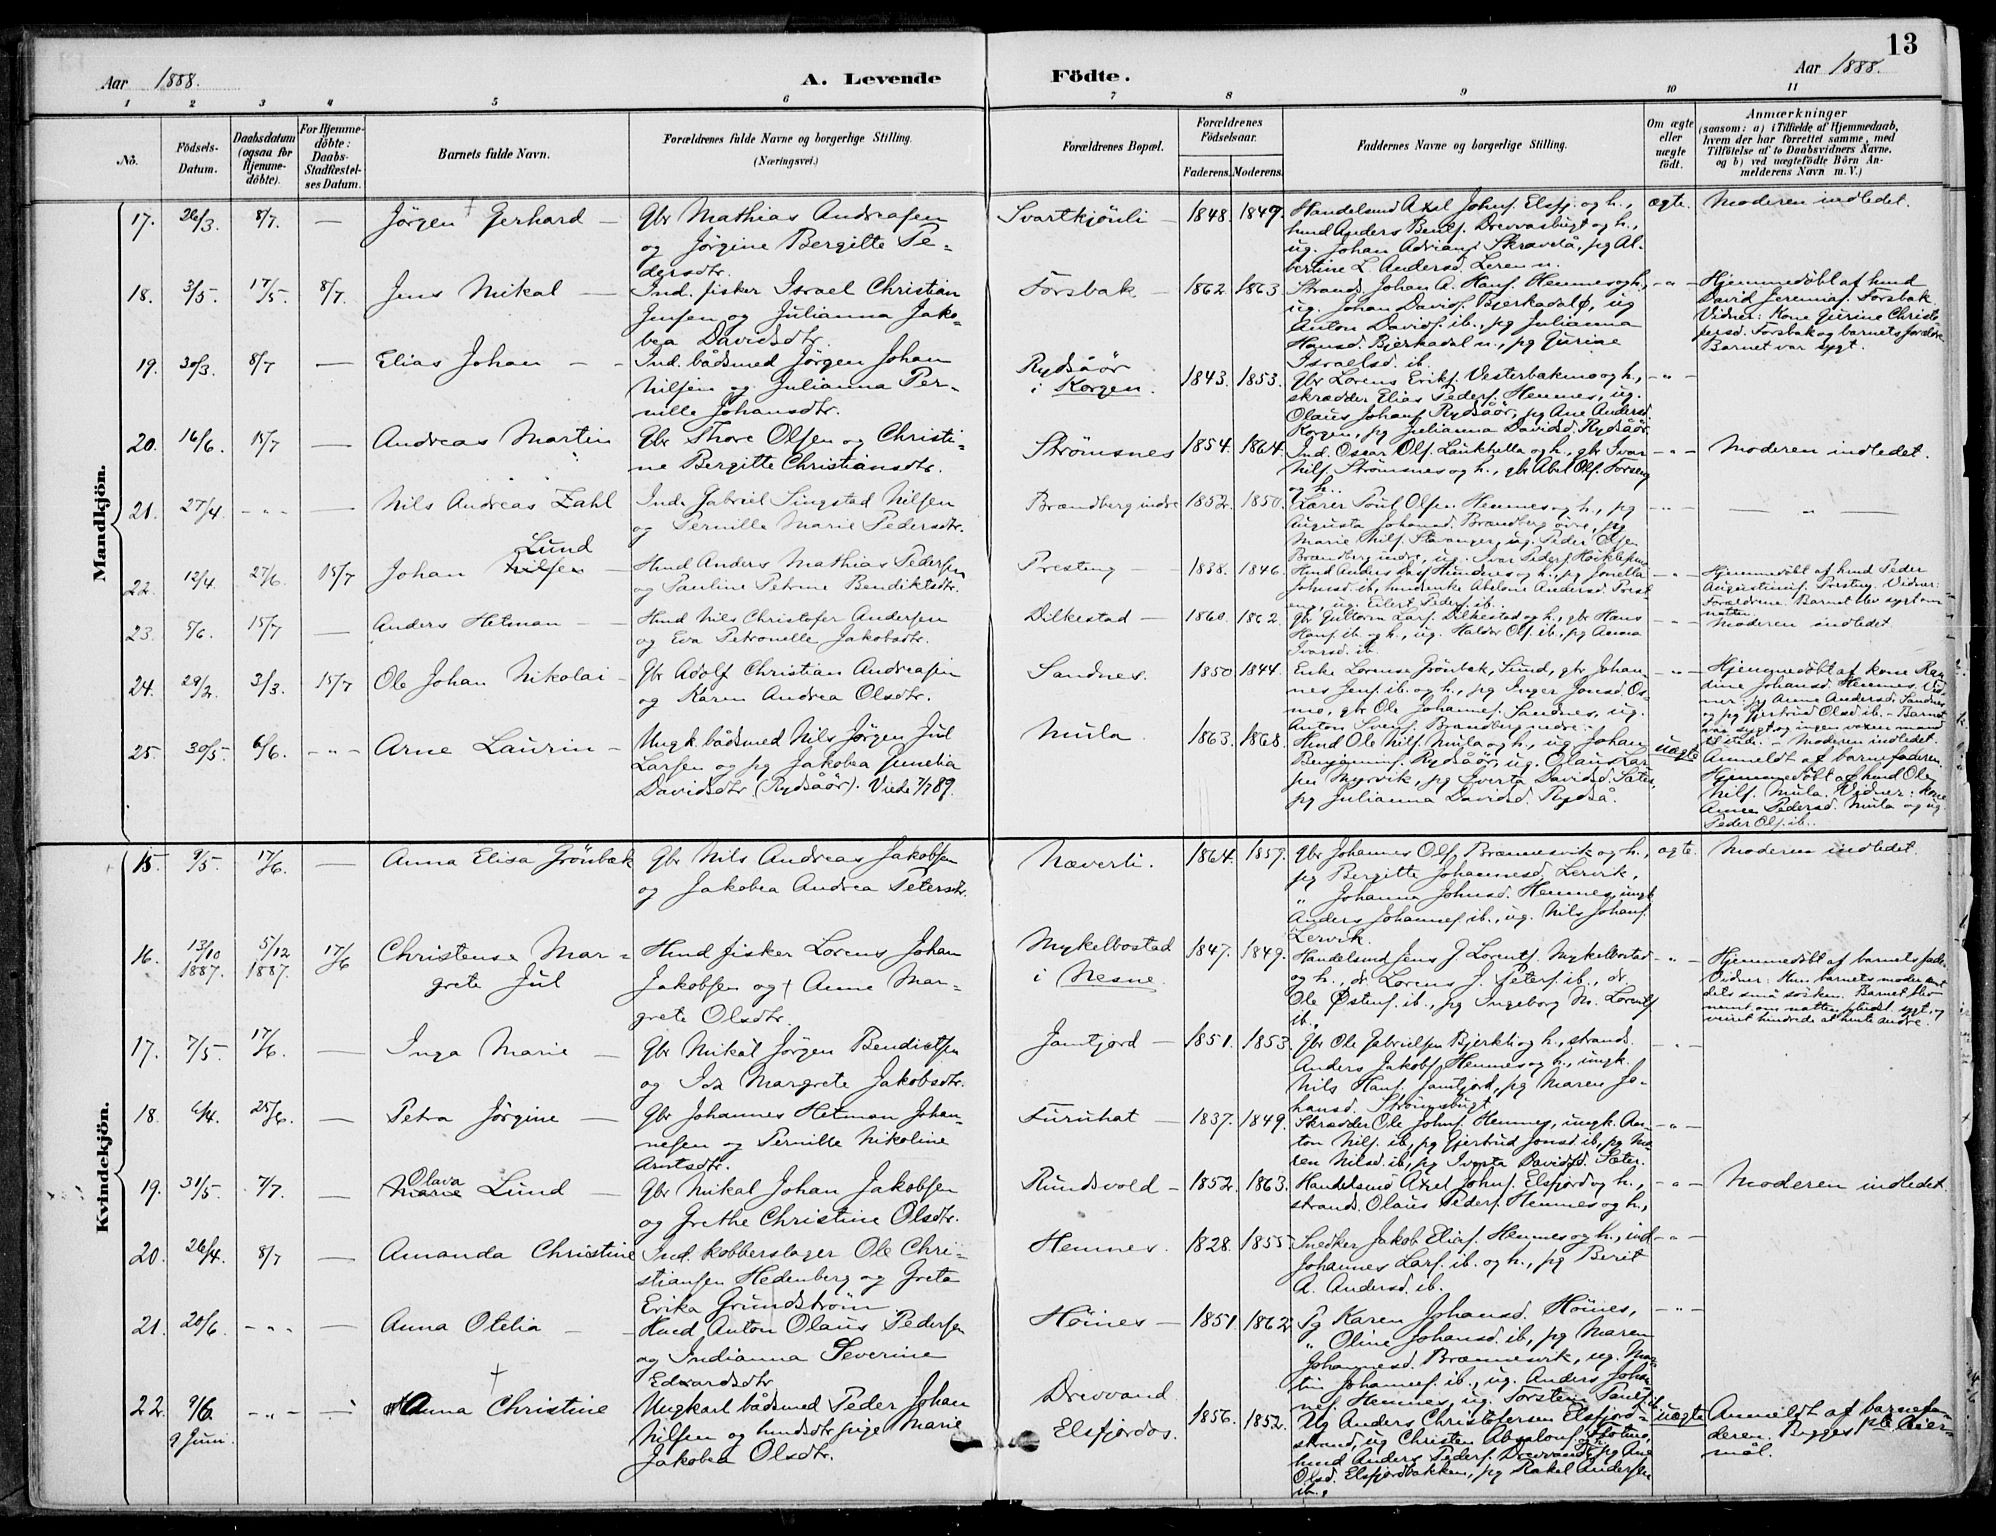 13
Aar 1888. A. Levende Födte. Aar 1888.
1 2 3 4 5 6 7 8 9 10 11
No.
Födsels-Datum.
Daabsdatum (ogsaa for Hjemme-döbte).
For Hjemme-döbte: Daabs-Stadfæstel-ses Datum.
Barnets fulde Navn.
Forældrenes fulde Navne og borgerlige Stilling.
(Næringsvei.)
Forældrenes Bopæl.
Forældrenes Födselsaar.
Faderens. Moderens.
Faddernes Navne og borgerlige Stilling.
Om ægte eller uægte födt.
Anmærkninger
(saasom: a) i Tilfælde af Hjemmedaab,
hvem der har forrettet samme, med
Tilföielse af to Daabsvidners Navne,
og b) ved uægtefödte Börn An-
melderens Navn m. V.)
Mandkjön.
17. 26/3 8/7. — Jörgen Gerhard — Gbr Mathias Andreasen
og Jörgine Bergitte Pe-
dersdtr.
Svartkjönli — 1848. 1849.
Handelsmd Axel Johns. Elsfj. og h.,
hmd Anders Bents. Drevvasbugt og h.,
ug. Johan Adrians. Skravlå, pg Al-
bertine L. Andersd. Leren n.
ægte. Moderen indledet.
18. 3/5. 17/5. 8/7 Jens Mikal — Ind. fisker Israel Christian
Jensen og Julianna Jako-
bea Davidsdtr.
Forsbak — 1862. 1863
Strands. Johan A. Hans. Hemnes og h.,
ug. Johan Davids. Bjerkadal ø, ug
Anton Davids. ib., pg Julianna
Hansd. Bjerkadal n., pg Gurine
Israelsd. ib.
-"- Hjemmedöbt af hmd
David Jeremias. Forsbak.
Vidner: Kone Gurine Christo
persd. Forsbak og barnets forældre
Barnet var sygt.
19. 30/3. 8/7 — Elias Johan — Ind. bådsmed Jörgen Johan
Nilsen og Julianna Per-
nille Johansdtr.
Rydsåör
i Korgen. 1843. 1853.
Gbr Lorens Eriks. Vesterbakmo og h.,
skrædder Elias Peders. Hemnes, ug.
Olaus Johans. Rydsåör, pg Ane Andersd.
Korgen, pg Julianna Davidsd. Rydsåör
-"-
20. 16/6. 15/7 — Andreas Martin Gbr Thore Olsen og Christi-
ne Bergitte Christiansdtr.
Strømsnes 1854. 1864.
Ind. Oscar Ols. Laukhella og h., gbr Ivar
Nils. Strømsnes og h., gbr Abel Ols. Forseng
og h..
-"- Moderen indledet.
21. 27/4. -"- — Nils Andreas Zahl Inds Gabriel Singstad Nilsen
og Pernille Marie Pedersdtr.
Brændberg indre 1852. 1850.
Lærer Poul Olsen Hemnes og h., pg
Augusta Johansd. Brændberg övre, pg
Marie Nils. Stavanger, ug. Peder Olsen
Brændberg indre, ug. Ivar Peders.
— " —
22. 12/4. 27/6. 15/7 Johan Lund Nilsen — Hmd Anders Mathias Pedersen
og Pauline Petrine Bendiktsdtr.
Presteng — 1838. 1846.
-"- Hjemmedöbt af hmd Peder
Augustinus. Presteng. Vidner:
Forældrene. Barnet blev sygt om
natten.
23. 5/6. 15/7 — Anders Hetman — Hmd Nils Christofer Andersen
og Eva Petronelle Jakobsdtr.
Dilkestad — 1860. 1862.
Gbr Guttorm Lars. Dilkestad og h., gbr Hans
Hans. ib. og h., ug. Haldor Ols. ib., pg Anna
Ivarsd. ib.
-"- Moderen indledet.
24. 29/2. 3/3. 15/7 Ole Johan Nikolai — Gbr Adolf Christian Andreasen
og Karen Andrea Olsdtr.
Sandnes. 1850 1844.
Enke Lorense Grönbæk, Sund, gbr Johan-
nes Jens. ib. og h., pg Inger Jonsd. Os-
mo, gbr Ole Johannes. Sandnes, ug.
Anton Svens. Brændberg indre.
-"- Hjemmedöbt af kone Ran
dine Johansd. Hemnes. Vid-
ner: pg Anne Andersd. Sandnes
og pg Gjertrud Olsd ib. — Barnet
var sygt og ingen voxen mand
til stede. — Moderen indledet.
25. 30/5. 6/6. -"- Arne Laurin — Ungk. bådsmed Nils Jörgen Jul
Larsen og pg Jakobea Junelia
Davidsdtr. (Rydsåör). Viede 7/7 89.
Mula. 1863. 1868.
Hmd Ole Nils. Mula og h., ug Johan
Benjamins. Rydsåör, ug. Olaus Lar-
sen Myrvik, pg Iverta Davidsd. Sæter,
pg Julianna Davidsd. Rydså.
uægte Anmeldt af barnefaderen.
Hjemmedöbt af hmd Ole
Nils. Mula. Vidner: kone
Anna Pedersd. Mula og ug.
Peder Ols. ib..
Kvindekjön.
15. 9/5. 17/6. — Anna Elisa Grönbæk Gbr Nils Andreas Jakobsen
og Jakobea Andrea Petersdtr.
Næverli. 1864. 1859.
Gbr Johannes Ols. Brænnesvik og h.,
pg Bergitte Johannesd. Lervik,
" Johanna Johnsd. Hemnes, ungk
Anders Johannes. ib., ug. Nils Johans.
Lervik.
ægte. Moderen indledet.
16. 13/10 1887. 5/12 1887. 17/6 Christense Mar-
grete Jul
Hmd fisker Lorens Johan
Jakobsen og † Anne Mar-
grete Olsdtr.
Mykelbostad
i Nesne. 1847. 1849.
Handelsmd Jens J. Lorents. Mykelbostad
og h., dr. Lorens J. Peters. ib., dr.
Ole Østens. ib., pg Ingeborg M. Lorents
ib.
-"- Hjemmedöbt af barnets fader
Vidner: Hun barnets moder samt
dets små sösken. Barnet blev
17. 7/5. 17/6. — Inga Marie — Gbr Mikal Jörgen Bendictsen
og Ida Margrete Jakobsdtr.
Jamtjord — 1851. 1853.
Gbr Ole Gabrielsen Bjerkli og h., strands.
Anders Jakobs. Hemnes og h., ungk
Nils Hans. Jamtjord, pg Maren Jo-
hansd. Strömsbugt.
-"-
18. 6/4. 25/6. — Petra Jörgine — Gbr Johannes Hetman Johan-
nesen og Pernille Nikoline
Arntsdtr.
Furuhat — 1837. 1849.
Skrædder Ole Johns. Hemnes, ungk. An-
ton Nils. ib, pg Gjertrud Jonsd. ib, pg Ma-
ren Nilsd. ib, pg Iverta Davidsd. Sæter.
-"-
19. 31/5. 7/7. — Olava Marie Lund — Gbr Mikal Johan Jakobsen
og Grethe Christine Olsdtr.
Rundsvold — 1852. 1863.
Handelsmd Axel Johns. Elsfjord og h.,
strands. Olaus Peders. Hemnes og h.,
-"- Moderen indledet.
20. 26/4. 8/7 — Amanda Christine Ind. kobberslager Ole Chri-
stiansen Hedenberg og Greta
Erika Grundström
Hemnes. 1828. 1855.
Snedker Jakob Elias. Hemnes og h., ind
Johannes Lars. ib. og h., pg Berit
A. Andersd. ib.
-"-
21. 20/6. -"- — Anna Otelia — Hmd Anton Olaus Pedersen
og Indianna Severine
Edvardsdtr
Höines — 1851. 1862
Pg Karen Johansd. Höines,
" Oline Johansd. ib, pg Maren
Johannesd. Brænnesvik, ug. Mar-
tin Johannes. ib., ug. Anders Johan-
nes. Hemnes, ug. Torsten Pauls. ib.
-"-
22. 9/6. 9 Juni. -"- — Anna Christine Ungkarl bådsmed Peder Johan
Nilsen og hmdsdtr pige Marie
Jakobea Olsdtr.
Drevvand
Elsfjordos. 1856. 1852.
Ug Anders Christofersen Elsfjord-
strand, ug Christen Absalons. Flotmo,
hmd Anders Peders. Drevvand og h, pg Ane
Olsd. Elsfjordbakken, pg Rakel Andersen
ib.
uægte Anmeldt af barnefa-
deren. Begges 1ste leier-
mål.